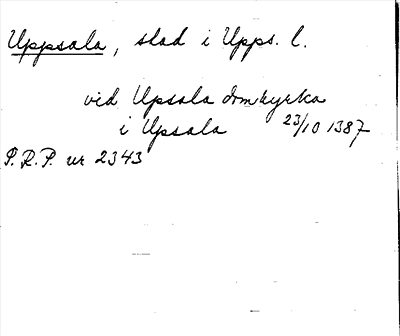 Uppsala, stad i Upps. l.
vid Upsala domkyrka
i Upsala 23/10 1387
P.R.P. nr 2343